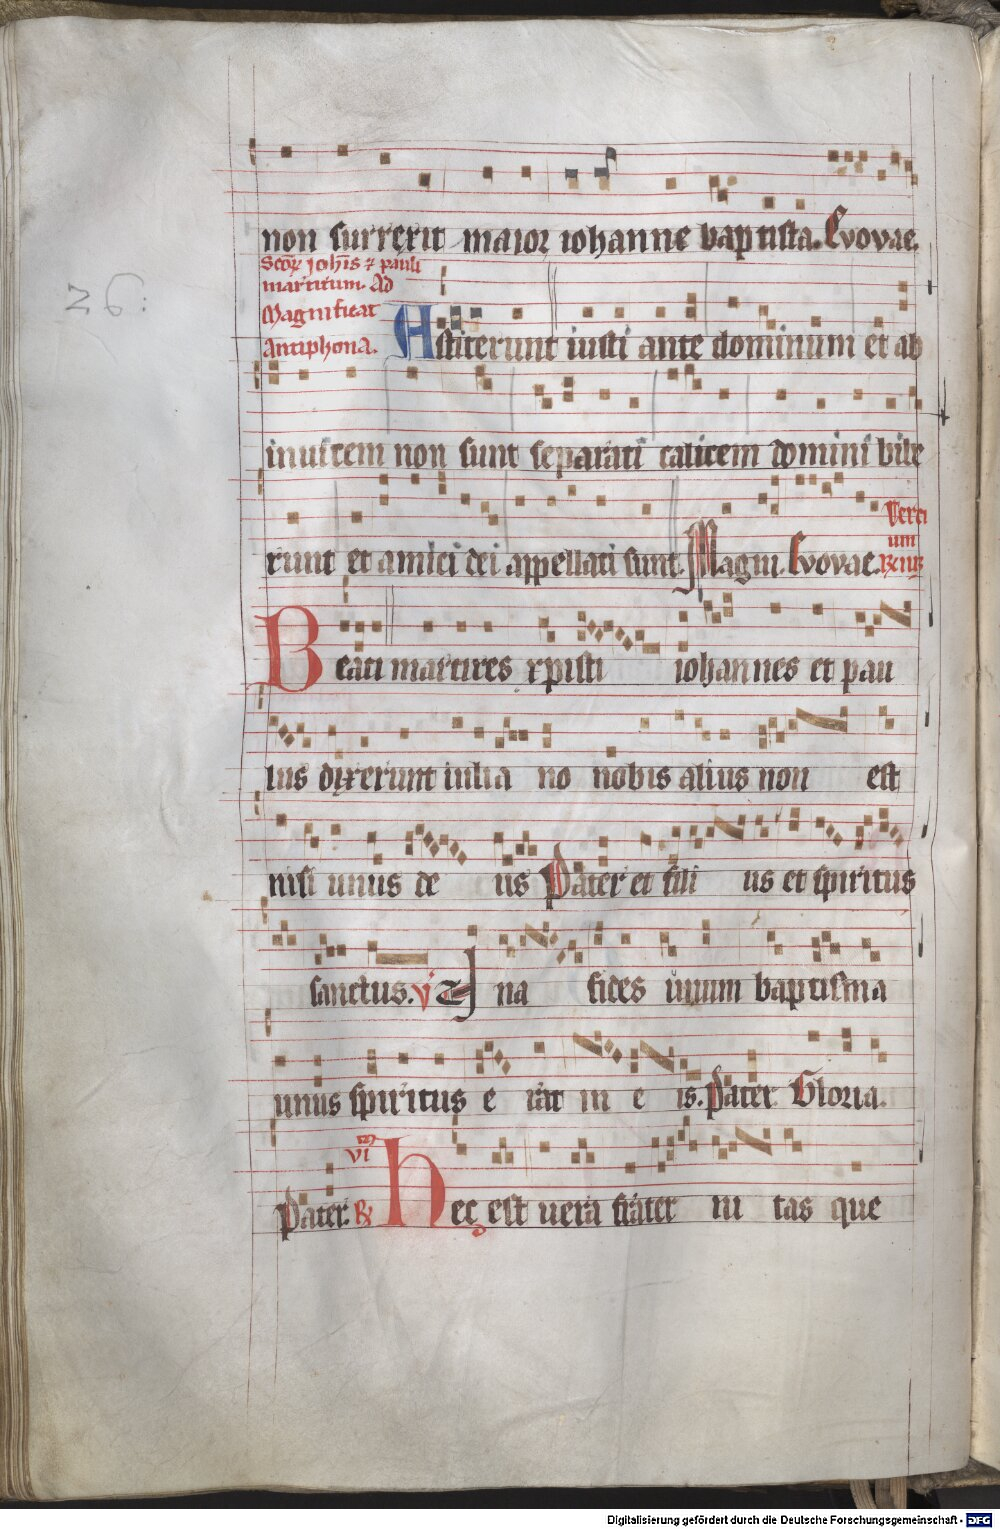 non surrexit maior iohanne baptista. Evovae.
Scoꝝ Johīs ⁊ pauli
martirum. Ad
Magnificat
Antiphona.
Astiterunt iusti ante dominum et ab
26:
inuicem non sunt separati calicem domini bibe
runt et amici dei appellati sunt. Magni. Evovae.
Beati martires xpisti iohannes et pau
lus dixerunt iulia no nobis alius non est
nisi unus de us Pater et fili us et spiritus
sanctus. V̇ Una fides unum baptisma
unus spiritus e rat in e is. Pater Gloria.
Pater. ℟ Hec est uera frater ni tas que
Digitalisierung gefördert durch die Deutsche Forschungsgemeinschaft - DFG